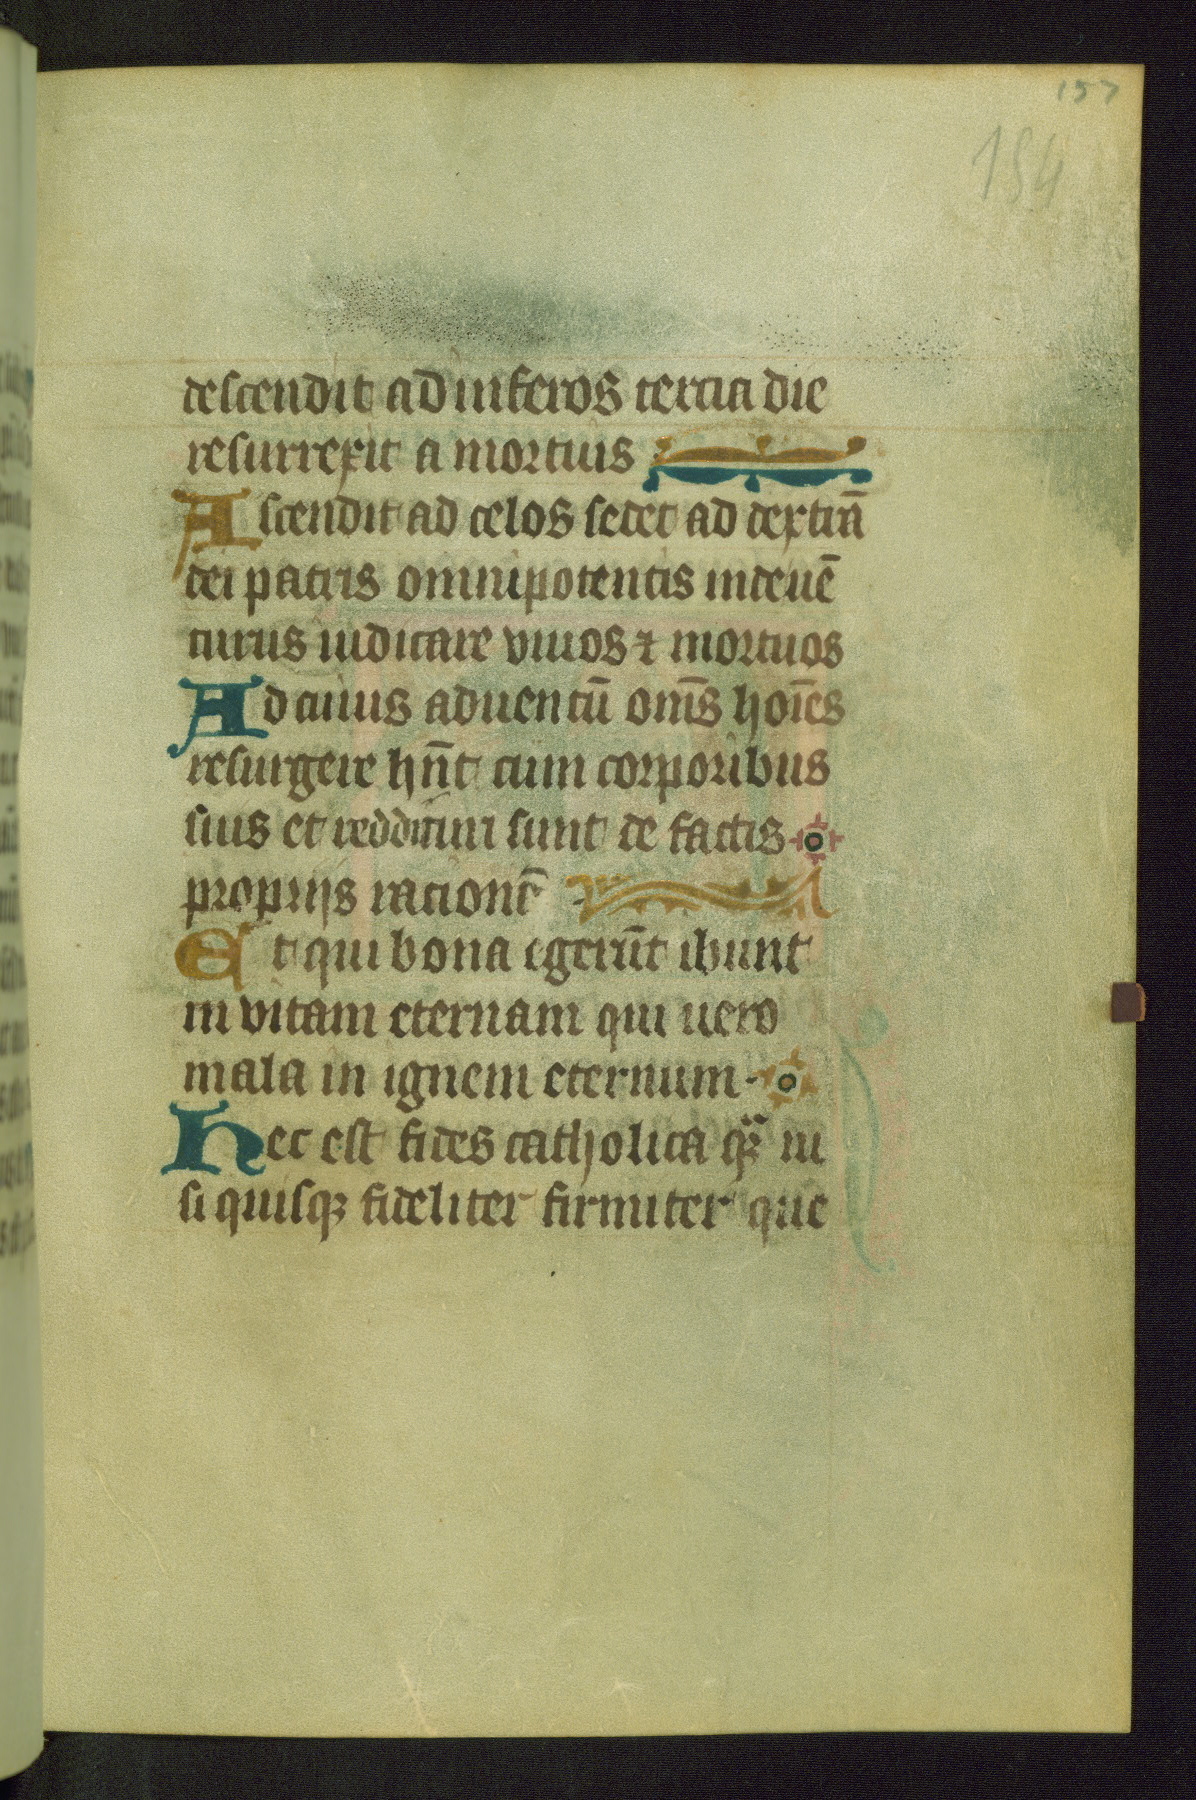 157
154
descendit ad inferos tercia die
resurrexit a mortuis
Ascendit ad celos sedet ad dextrā
dei patris omnipotentis inde uē
turus iudicare viuos ⁊ mortuos
Ad cuius aduentū om̄s hoīes
resurgere hn̄t cum corporibus
suis et reddituri sunt de factis
proprijs racionē
Et qui bona egerūt ibunt
in vitam eternam qui uero
mala in ignem eternum
hec est fides catholica qᷓ ni
si quisqꝫ fideliter firmiter que